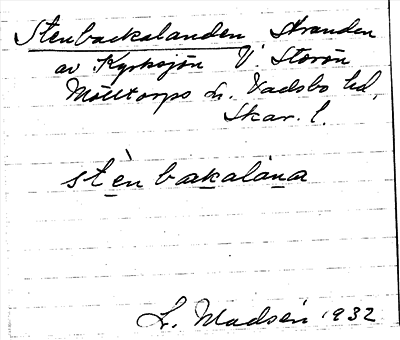 Stenbackalanden Stranden
av Kyrksjön V. Storön
Mölltorps s. Vadsbo hd,
Skar. l.
stèn bakalána
L. Madsén 1932